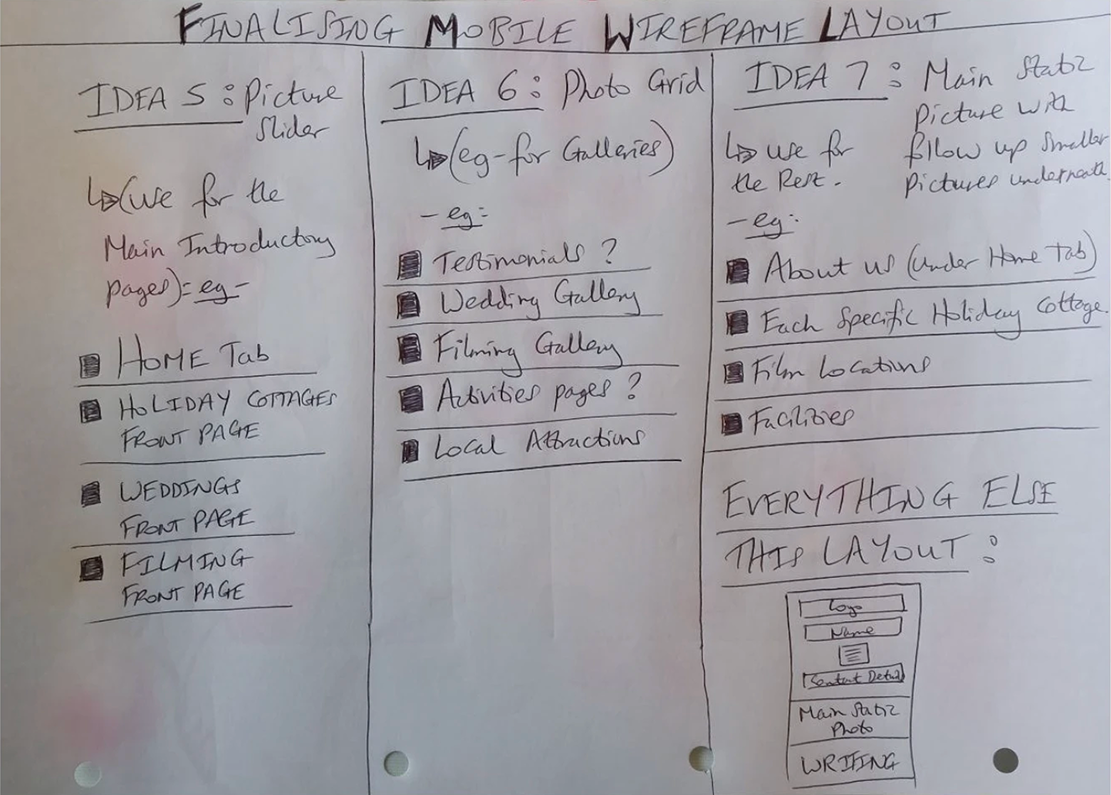 FINALISING MOBILE WIREFRAME LAYOUT
IDEA 5: Picture
Slider
(use for the
Main Introductory
pages)= eg-
HOME Tab
HOLIDAY COTTAGES
FRONT PAGE
WEDDINGS
FRONT PAGE
FILMING
FRONT PAGE
IDEA 6: Photo Grid
(eg-for Galleries)
- eg:
Testimonials ?
Wedding Gallery
Filming Gallery
Activities pages ?
Local Attractions
IDEA 7: Main Static
Picture with
follow up smaller
pictures underneath.
use for
the Rest.
- eg:
About us (under Home Tab)
Each Specific Holiday Cottage.
Film Locations
Facilities
EVERYTHING ELSE
THIS LAYOUT:
Logo
Name
Main Static
Photo
WRITING